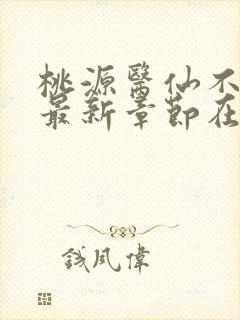 桃源醫仙不
最新章節在
錢風偉